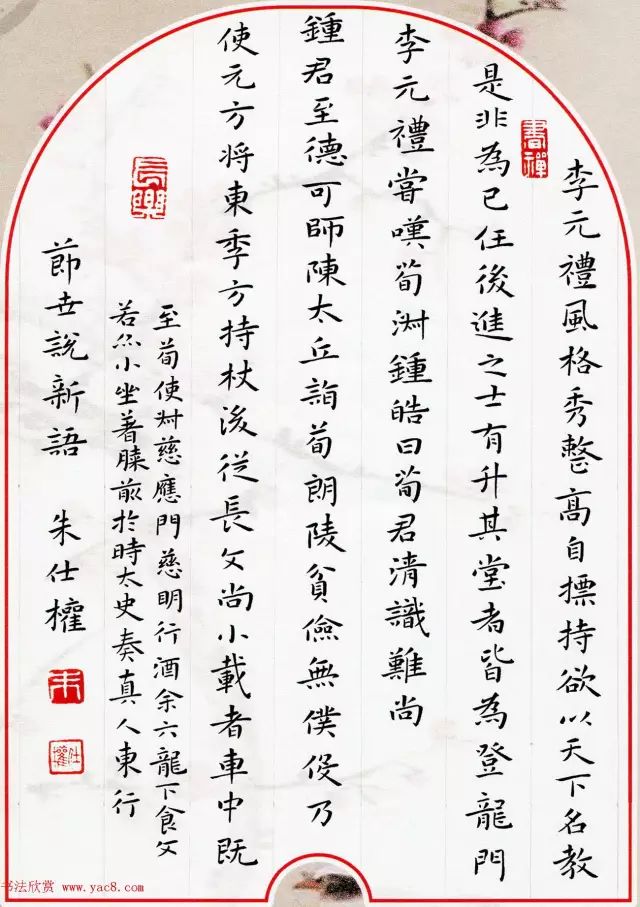 李元禮風格秀整高自摽持欲以天下名教
是非為己任後進之士有升其堂者皆為登龍門
李元禮嘗嘆荀淑鍾皓曰荀君清識難尚
鍾君至德可師陳太丘詣荀朗陵貧儉無僕役乃
使元方将東季方持杖後從長文尚小載者車中既
至荀使叔慈應門慈明行酒余六龍下食文
若亦小坐著膝前於時太史奏真人東行
節世說新語 朱仕權
書禪
長樂
朱
仕權
书法欣赏 www.yac8.com